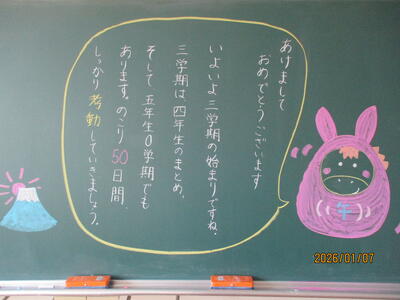 あけまして
おめでとうございます
いよいよ三学期の始まりですね。
三学期は、四年生のまとめ、
そして五年生0学期でも
あります。のこり50日間、
しっかり考動していきましょう。
午
2026/01/07